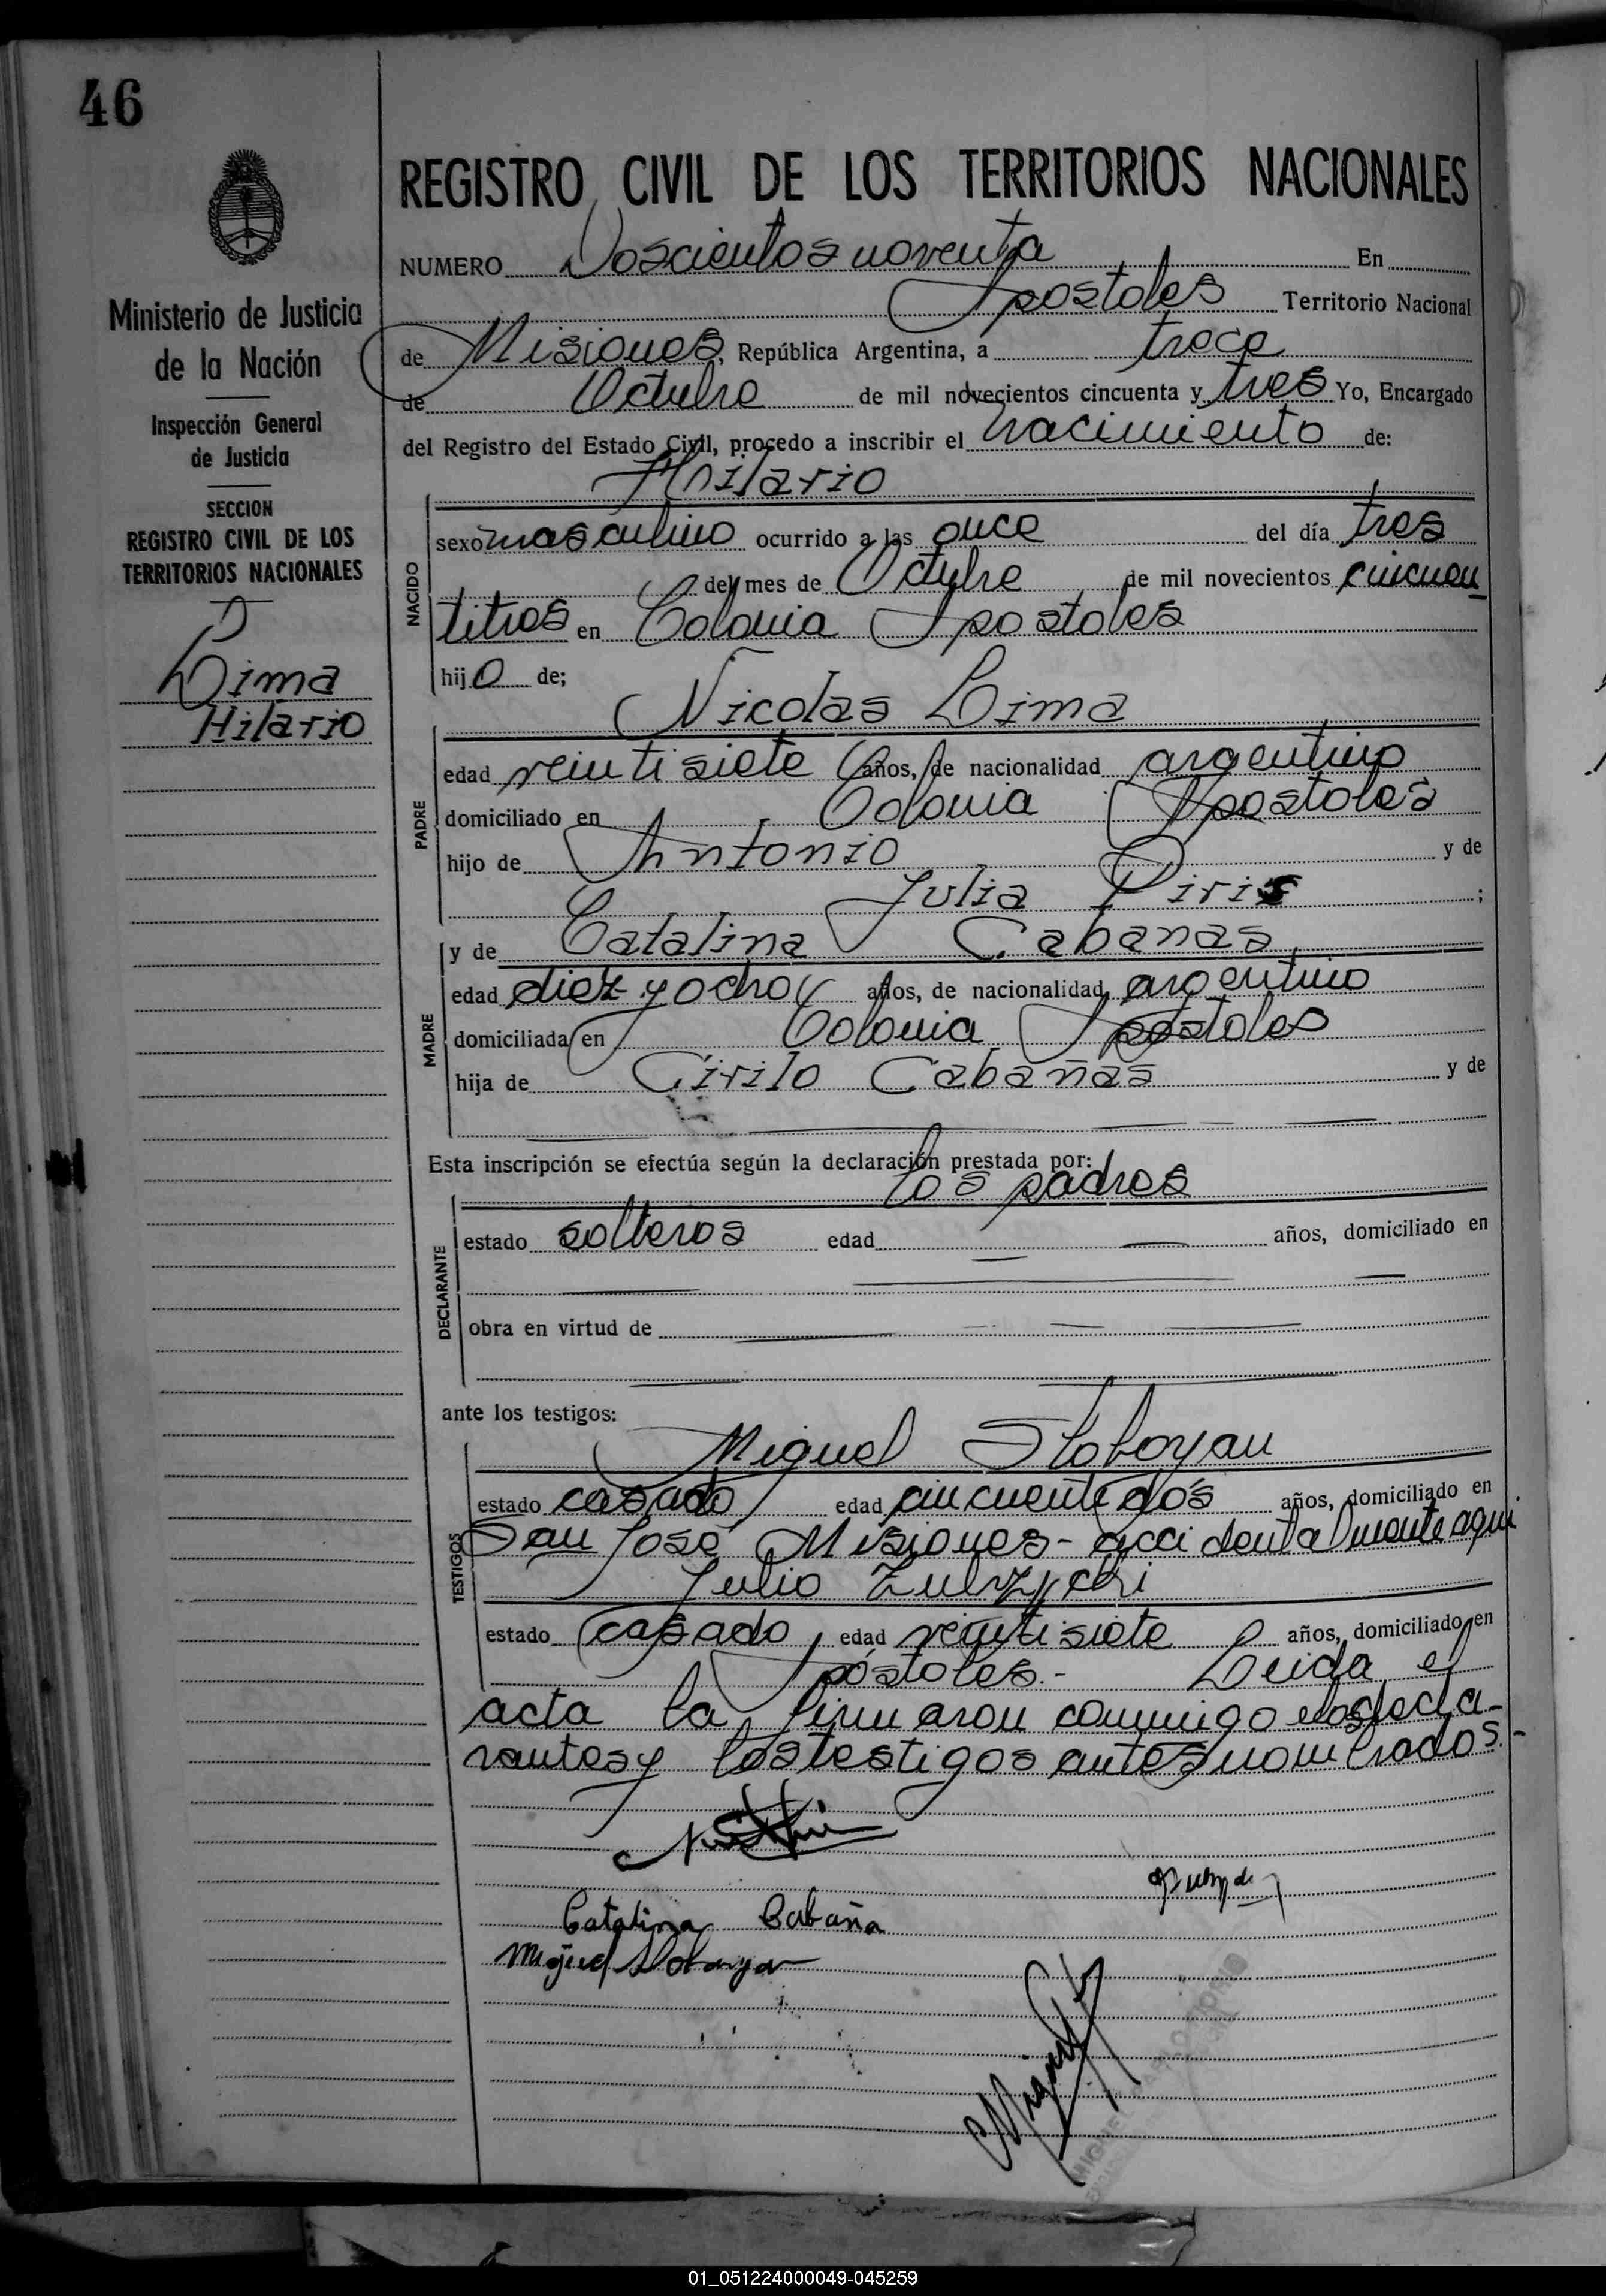 46
Ministerio de Justicia
de la Nación
Inspección General
de Justicia
SECCION
REGISTRO CIVIL DE LOS
TERRITORIOS NACIONALES
Lima
Hilario
REGISTRO CIVIL DE LOS TERRITORIOS NACIONALES
NUMERO Doscientos noventa En
Apostoles Territorio Nacional
de Misiones, República Argentina, a trece
de Octubre de mil novecientos cincuenta y tres Yo, Encargado
del Registro del Estado Civil, procedo a inscribir el nacimiento de:
Hilario
NACIDO
sexo masculino ocurrido a las once del día tres
del mes de Octubre de mil novecientos cincuen
titres en Colonia Apostoles
hijo de;
Nicolas Lima
PADRE
edad veintisiete años, de nacionalidad argentino
domiciliado en Colonia Apostoles
hijo de Antonio y de
Julia Piris ;
y de Catalina Cabanas
MADRE
edad diez y ocho años, de nacionalidad argentino
domiciliada en Colonia Apostoles
hija de Cirilo Cabañas y de
Esta inscripción se efectúa según la declaración prestada por:
los padres
DECLARANTE
estado solteros edad años, domiciliado en
obra en virtud de
ante los testigos:
Miguel Sloboyan
TESTIGOS
estado casado edad cincuentidos años, domiciliado en
San José Misiones - accidentalmente aqui
Julio
estado casado, edad veintisiete años, domiciliado en
Apóstoles.- Leida el
acta la firmaron conmigo los decla-
rantes y los testigos antes nombrados.-
Catalina Cabaña
Miguel Sloboyan
01_051224000049-045259